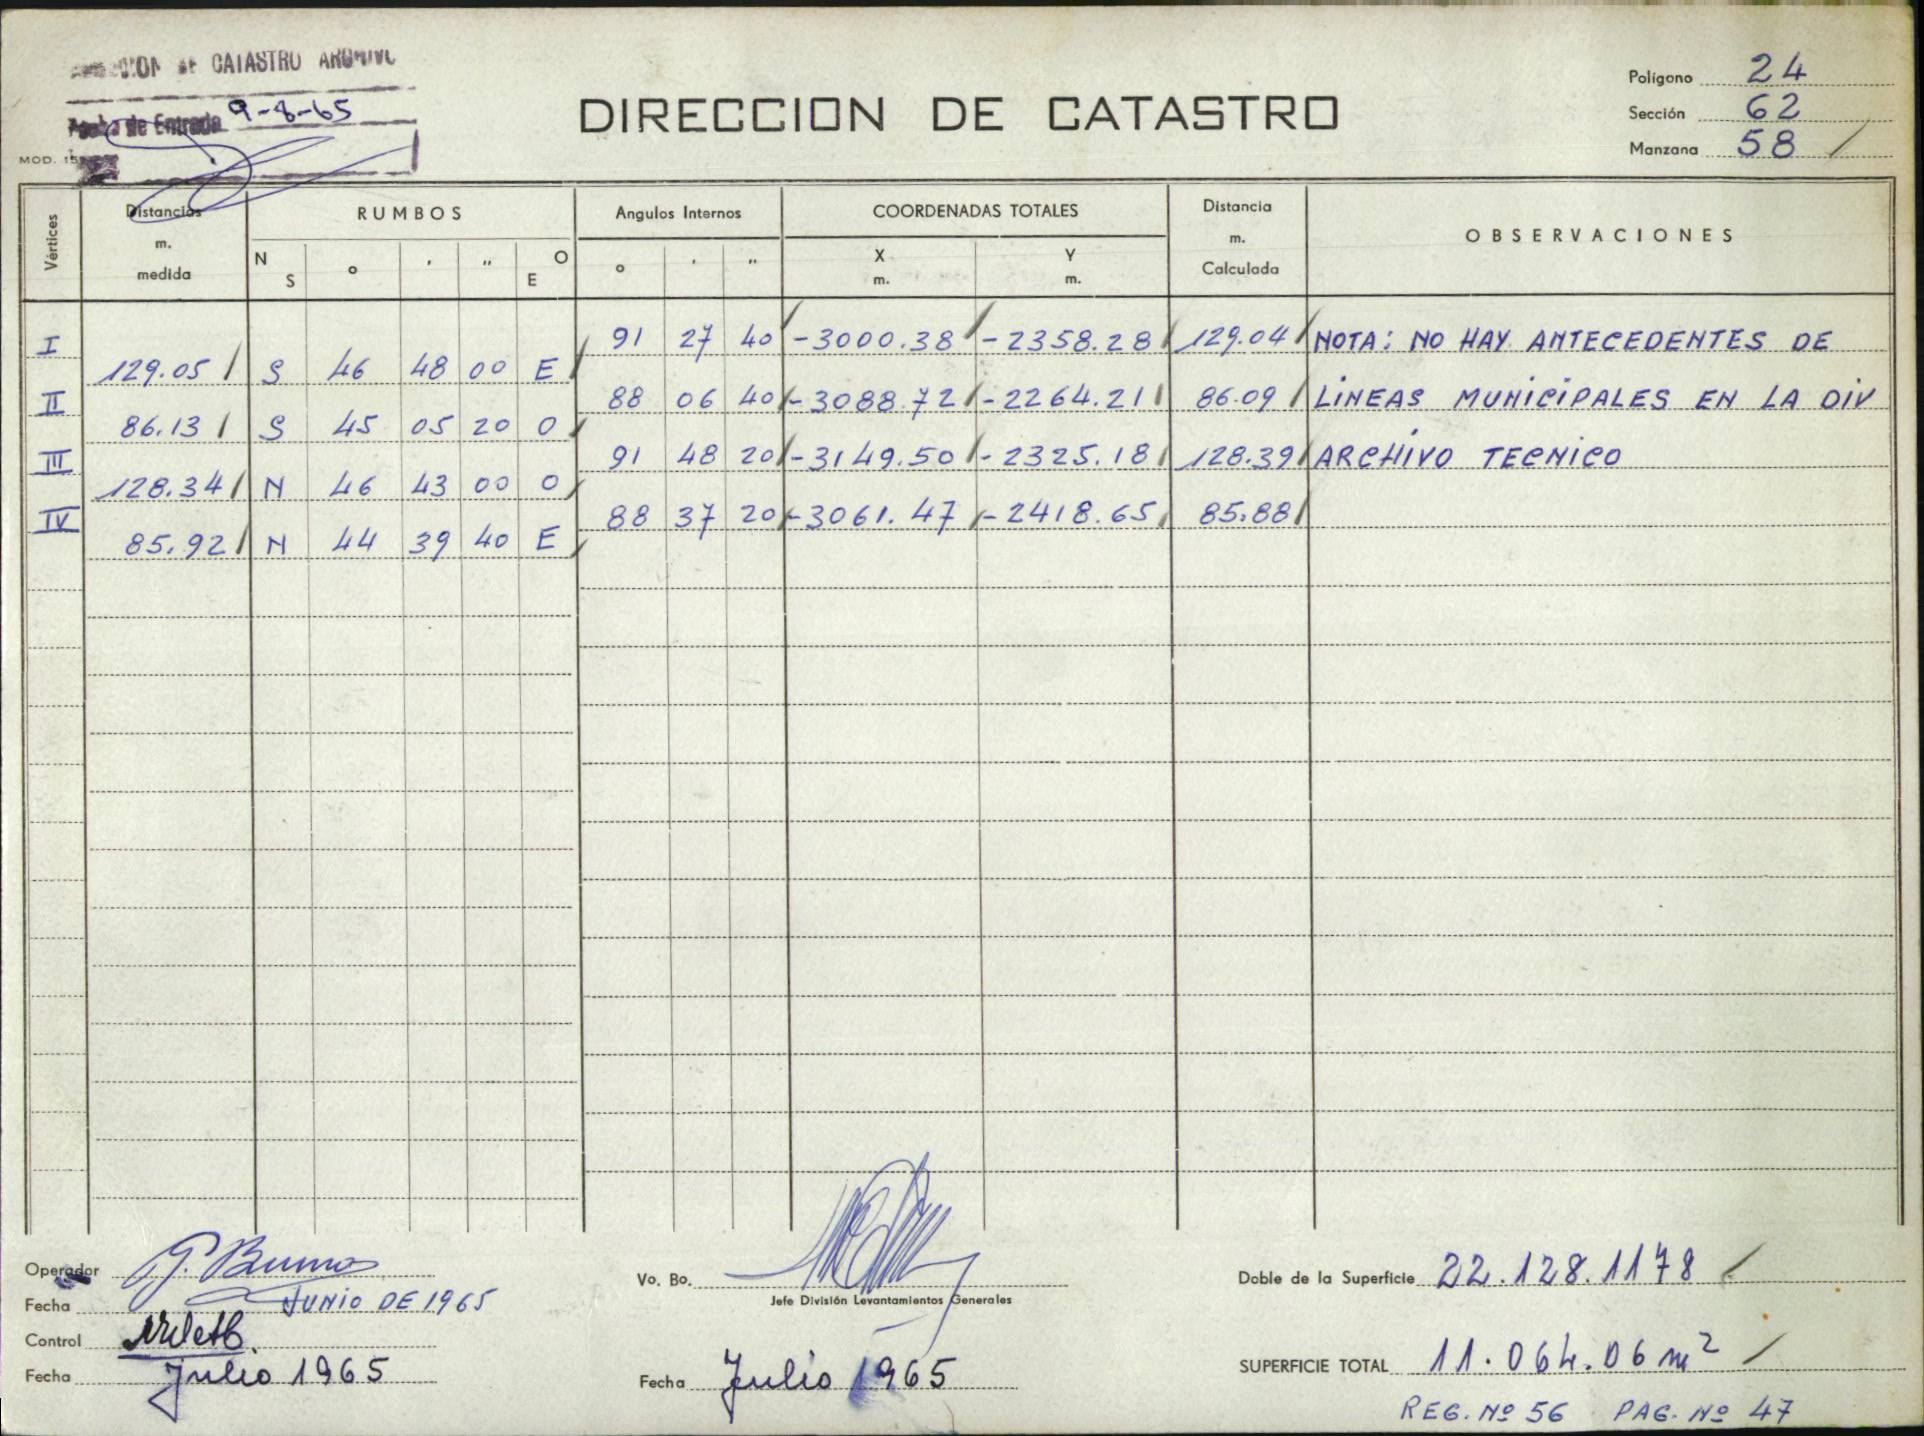 DE CATASTRO ARCHIVO
Fecha de Entrada 9-8-65
MOD. 15
DIRECCION DE CATASTRO
Polígono 24
Sección 62
Manzana 58 /
Vértices
Distancias m. medida
RUMBOS
N S ° ' " O E
Angulos Internos
° ' "
COORDENADAS TOTALES
X m. Y m.
Distancia m. Calculada
OBSERVACIONES
I 91 27 40 -3000.38 -2358.28 129.04 NOTA: NO HAY ANTECEDENTES DE
129.05 S 46 48 00 E
II 88 06 40 -3088.72 -2264.21 86.09 LINEAS MUNICIPALES EN LA DIV
86.13 S 45 05 20 O
III 91 48 20 -3149.50 -2325.18 128.39 ARCHIVO TECNICO
128.34 N 46 43 00 O
IV 88 37 20 -3061.47 -2418.65 85.88
85.92 N 44 39 40 E
Operador
Fecha JUNIO DE 1965
Control
Fecha Julio 1965
Vo. Bo.
Jefe División Levantamientos Generales
Fecha Julio 1965
Doble de la Superficie 22.128.1178
SUPERFICIE TOTAL 11.064.06 m²
REG. Nº 56 PAG. Nº 47